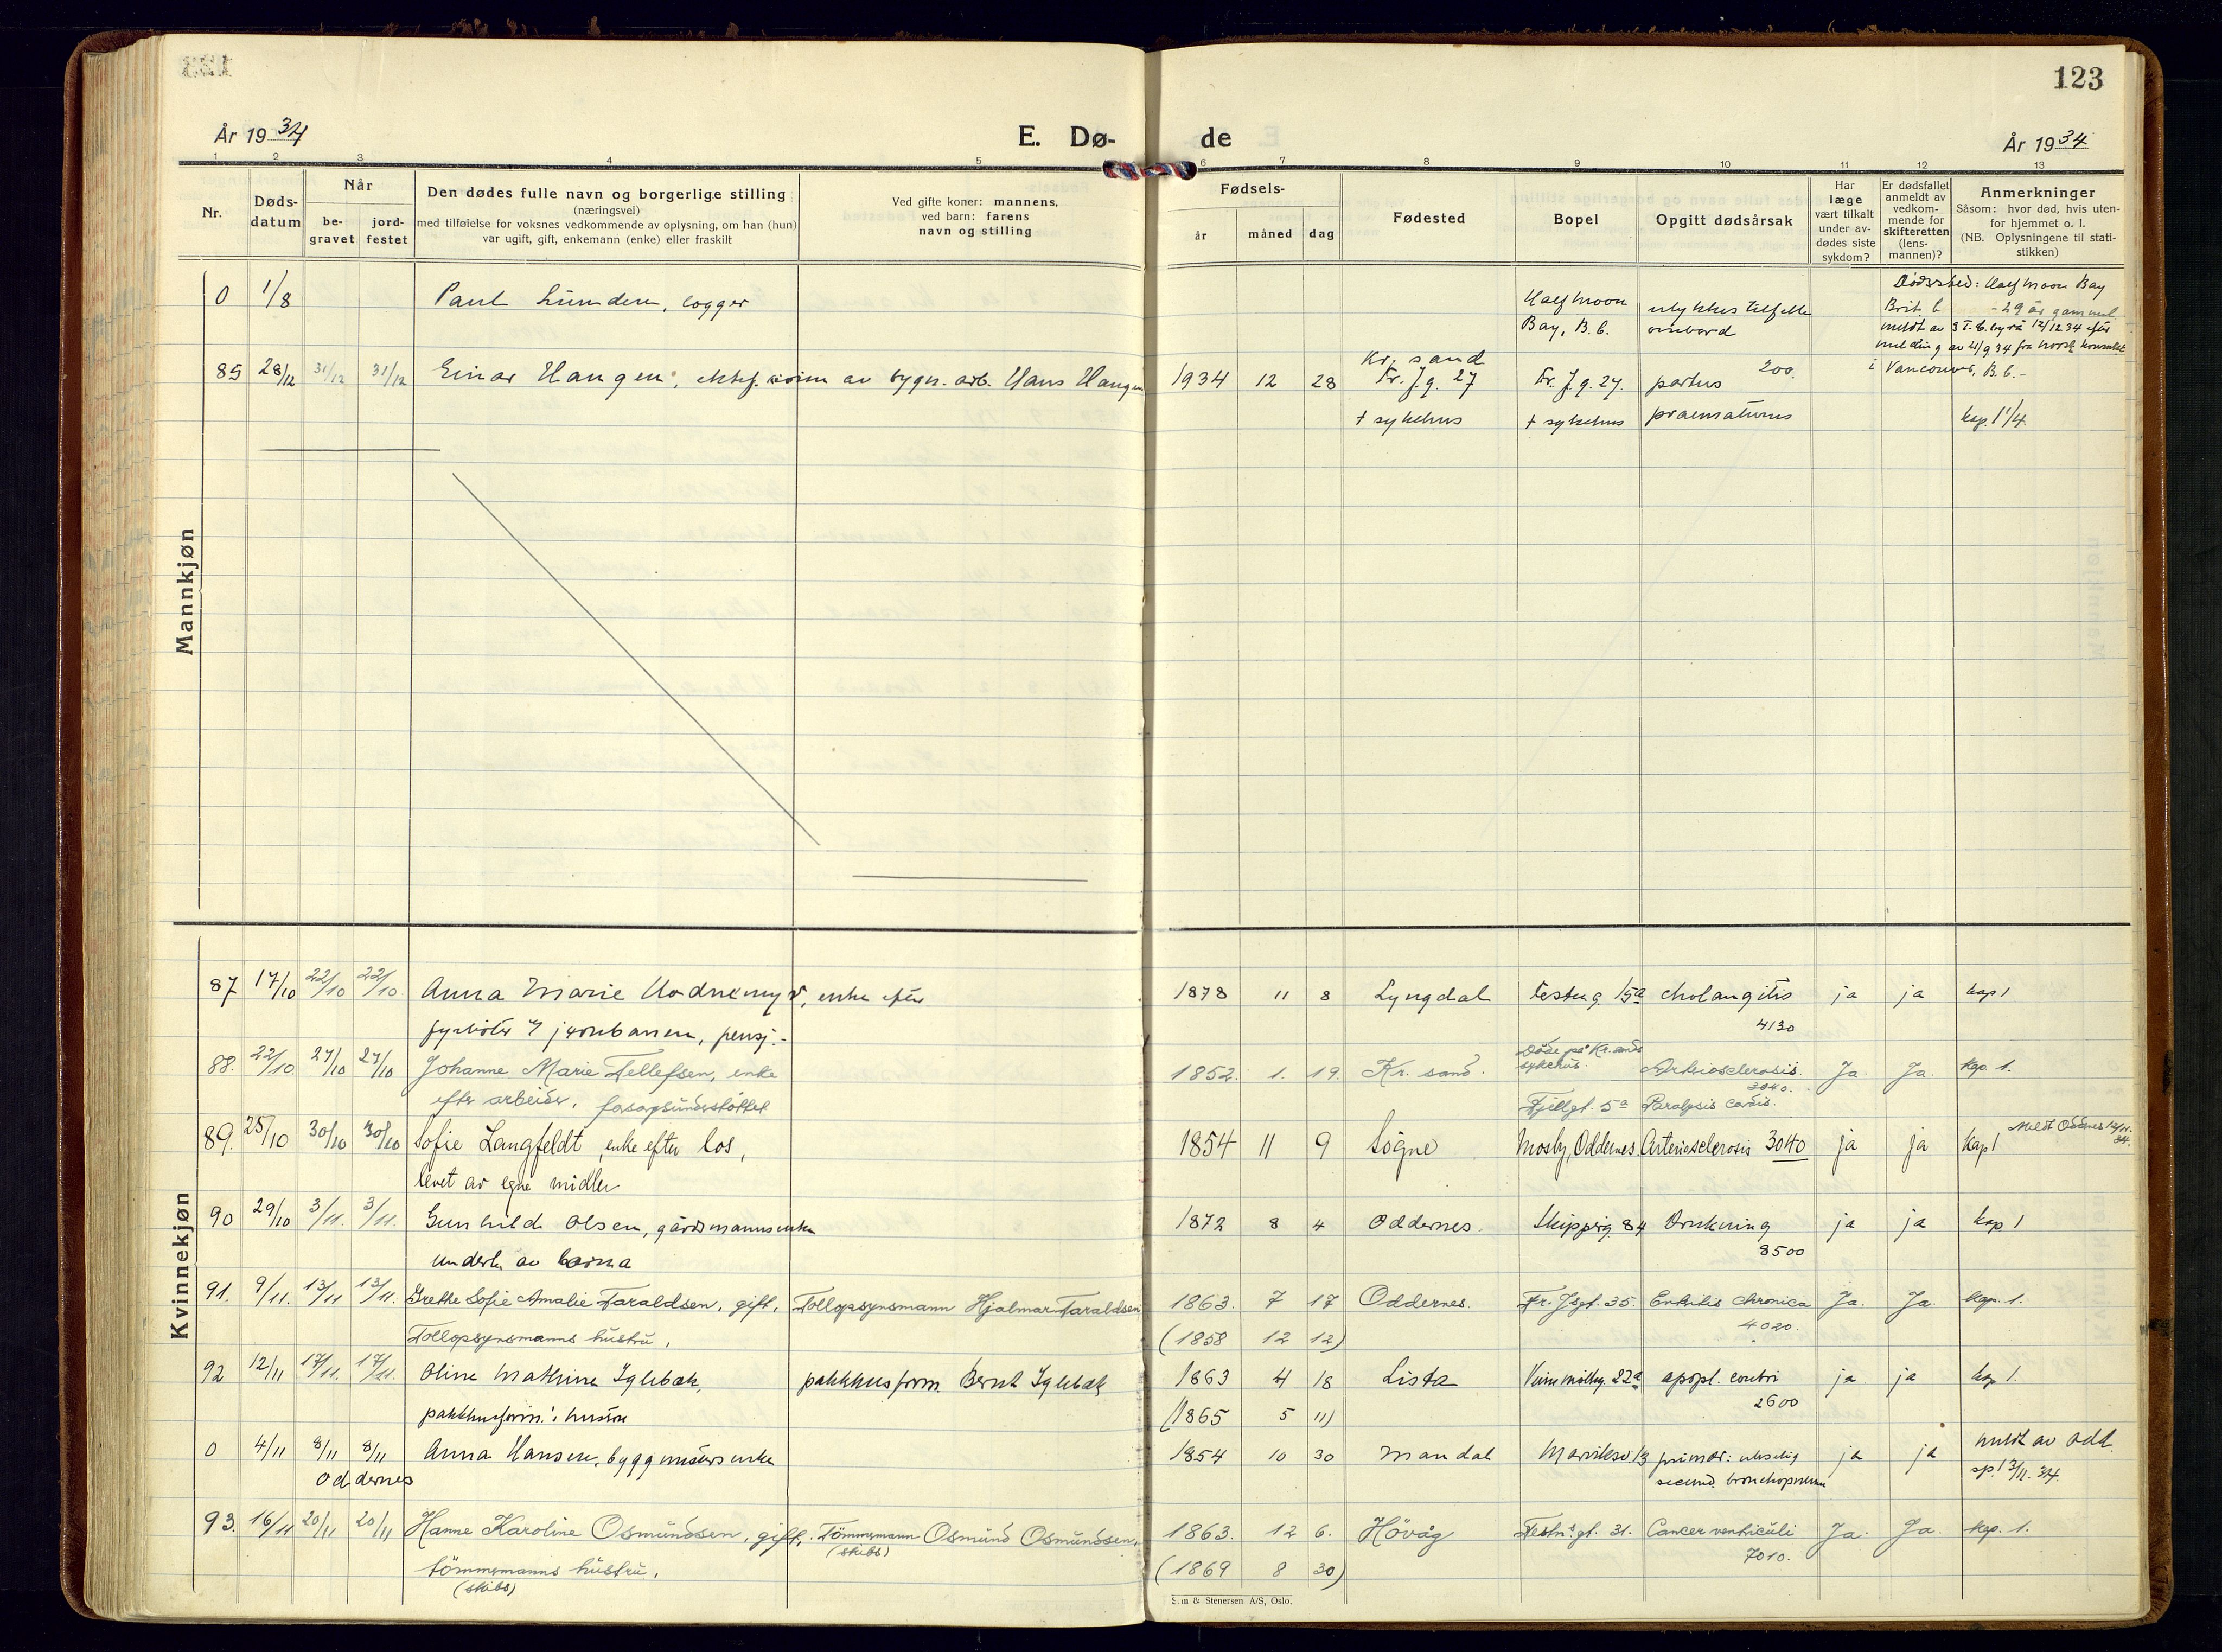 123
År 1934
E. Dø-
de
År 1934
1 2 3 4 5 6 7 8 9 10 11 12 13
Nr.
Døds-
datum
Når
be-
gravet
jord-
festet
Den dødes fulle navn og borgerlige stilling
(næringsvei)
med tilføielse for voksnes vedkommende av oplysning, om han (hun)
var ugift, gift, enkemann (enke) eller fraskilt
Ved gifte koner: mannens,
ved barn: farens
navn og stilling
Fødsels-
år måned dag
Fødested
Bopel
Opgitt dødsårsak
Har
læge
vært tilkalt
under av-
dødes siste
sykdom?
Er dødsfallet
anmeldt av
vedkom-
mende for
skifteretten
(lens-
mannen)?
Anmerkninger
Såsom: hvor død, hvis uten-
for hjemmet o. l.
(NB. Oplysningene til stati-
stikken)
Mannkjøn
0 1/8 Paul Lunden, logger
Halfmoon
Bay, B. C.
ulykkestilfelle
ombord
Dødssted: Halfmoon Bay
Brit. C. - 29 år gammel
meldt av 12/12 34 efter
melding av 21/9 34 fra norsk konsulat
i Vancouver, B. C. -
85 28/12 31/12 31/12 Einar Haugen, av bygn. arb. Hans Haugen 1934 12 28
Kr. sand
Fr. J. g. 27 Fr. J. g. 27. partus 200.
+ sykehus + sykehus praematurus kap. 1 1/4.
Kvinnekjøn
87 17/10 22/10 22/10 Anna Marie Vodnemyr, enke efter 1878 11 8 Lyngdal Festn g. 15a cholangitis ja ja kap 1
fyrbøter v/ jernbanen, pensj. - 4130
88. 22/10 27/10 27/10 Johanne Marie Tellefsen, enke 1852. 1. 19. Kr. sand. Døde på Kr. sands
sykehus. Arteriosclerosis Ja. Ja. Kap. 1.
3040.
efter arbeider, forsorgsunderstøttet Fjellgt. 5a Paralysis cordis.
89. 25/10 30/10 30/10 Sofie Langfeldt, enke efter los, 1854 11 9 Søgne Mosby, Oddernes Arteriosclerosis 3040 ja ja Kap 1 Meldt Oddernes 12/11. 34.
levet av egne midler
90 29/10 3/11. 3/11. Gunhild Olsen, gårdmannsenke 1872 8 4 Oddernes. Skipperg. 84 Drukning ja ja kap 1
underh. av barna 8500
91. 9/11. 13/11 13/11. Grethe Sofie Amalie Taraldsen, gift, Tollopsynsmann Hjalmar Taraldsen 1863. 7 17 Oddernes. Fr. Jsgt. 35. Enteritis chronica Ja. Ja. Kap. 1.
Tollopsynsmanns hustru, (1858 12 12) 4020.
92 12/11 17/11. 17/11. Oline Mathine Iglebæk, pakkhusform. Bernt Iglebæk 1863 4 18 Lista 22a apopl. cerebri ja ja kap 1.
pakkhusform.'s hustru (1865 5 11) 2600
0 4/11 8/11 8/11 Anna Hansen, byggmesters enke 1854 10 30 Mandal 13 primær: ja ja meldt av Odd.
Oddernes secund. bronchopneum sp. 1 3/11. 34.
93. 16/11 20/11 20/11 Hanne Karoline Osmundsen, gift. Tømmermann Osmund Osmundsen, 1863. 12 6. Høvåg Festn.gt. 31. Cancer ventriculi Ja. Ja. Kap. 1.
(skibs)
tømmermanns hustru, (1869 8 30) 7010.
(skibs)
& Stenersen A/S, Oslo.